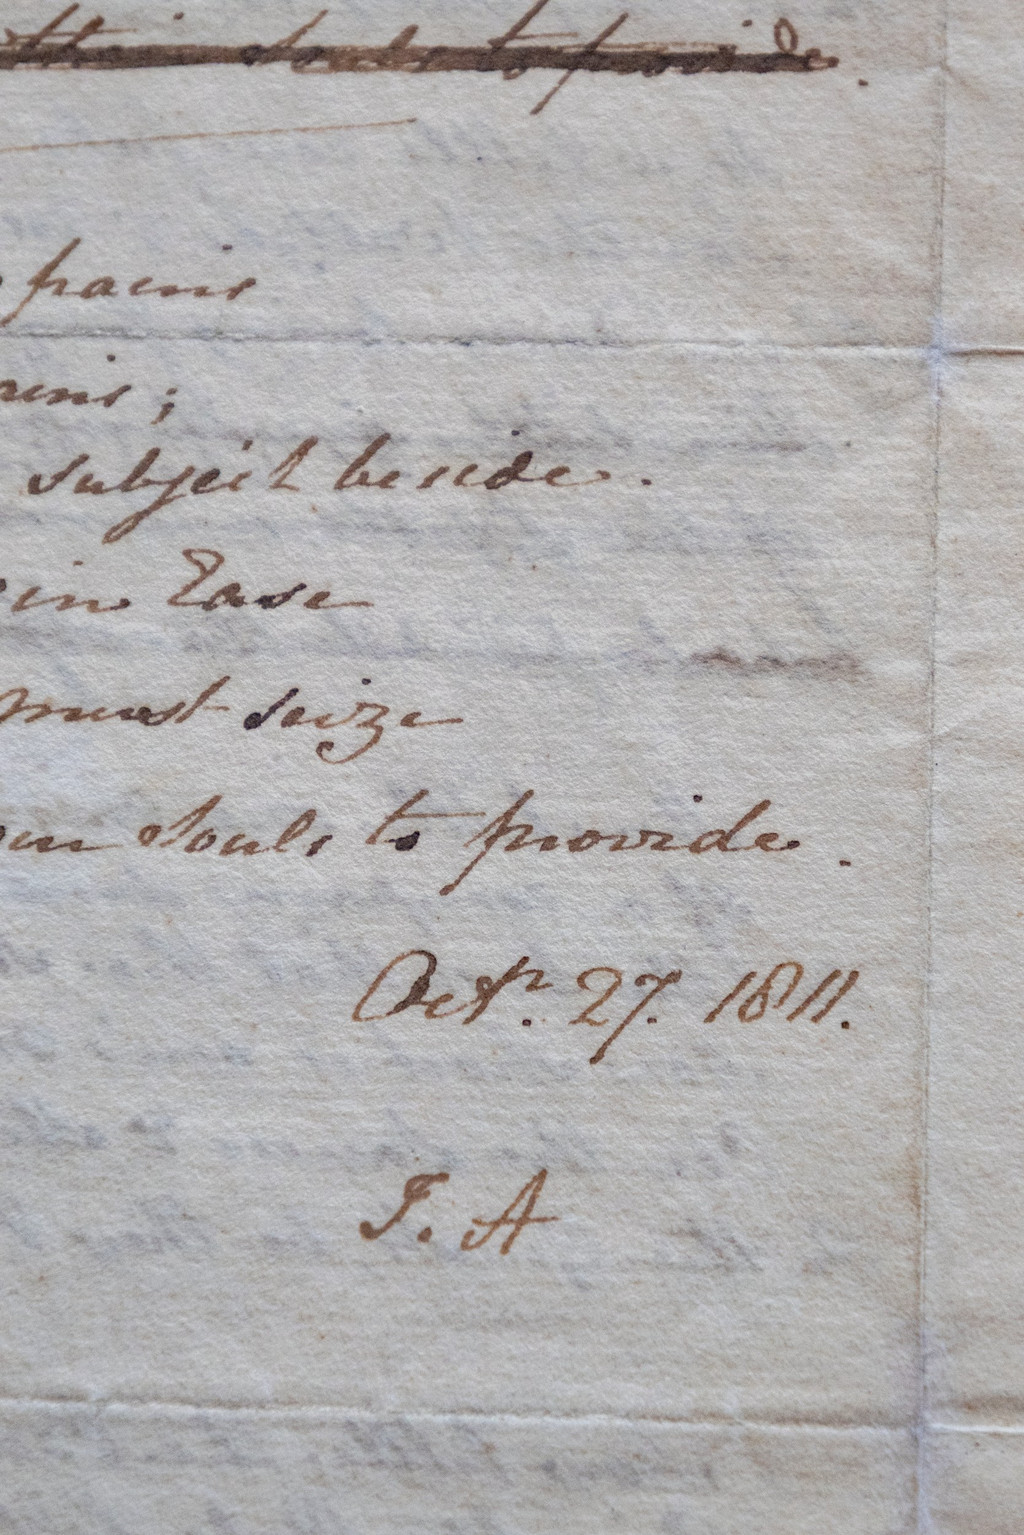 souls to provide.
pains
subject beside.
in Ease
must seize
souls to provide.
Octr. 27. 1811.
J. A